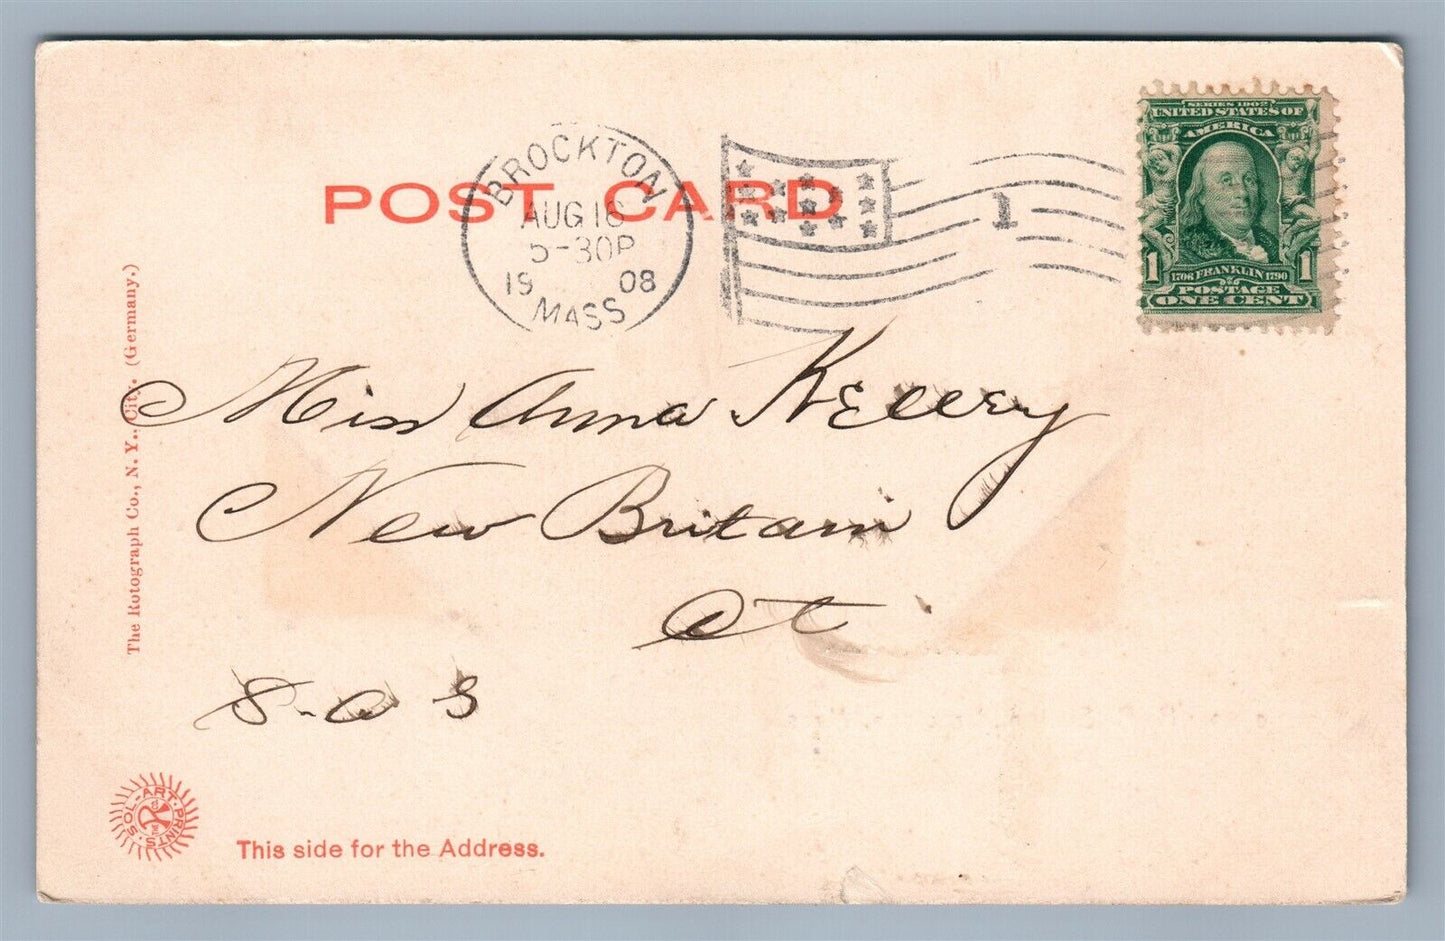 SERIES 1902
UNITED STATES OF
AMERICA
1706 FRANKLIN 1790
1 1
POSTAGE
ONE CENT
BROCKTON
AUG 18
5-30P
19 08
MASS
1
POST CARD
Miss Anna Kelley
New Britain
Ct
S-a S
The Rotograph Co., N. Y. City. (Germany.)
SOL-ART-PRINTS
This side for the Address.